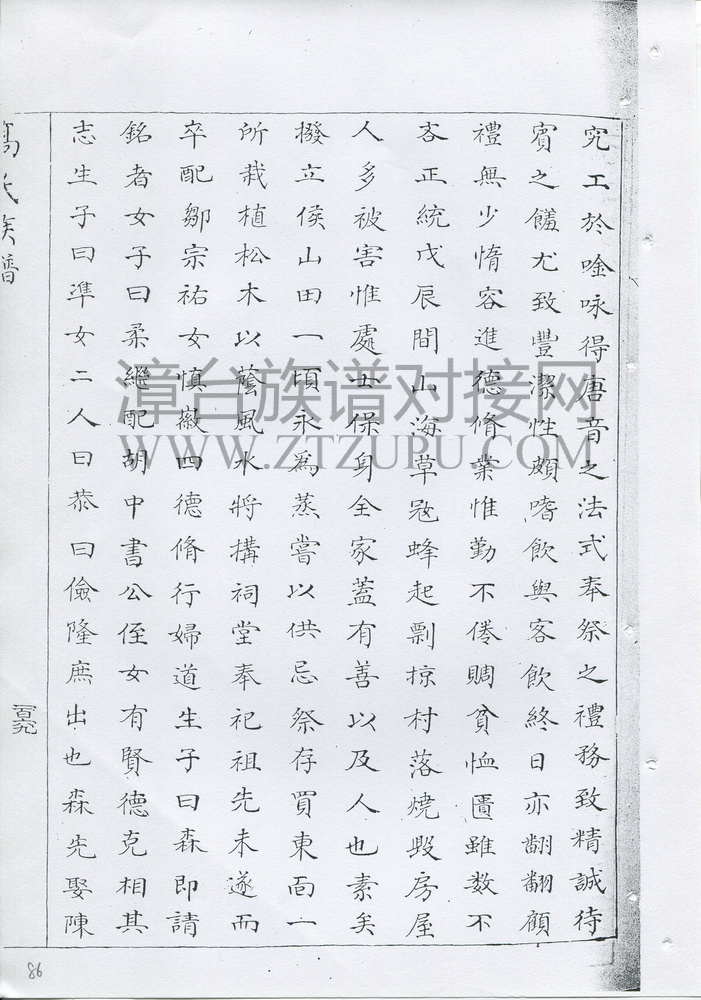 究工於唫咏得唐音之法式奉祭之禮務致精誠待
賓之饈尤致豐潔性頗嗜飲與客飲終日亦翩翩顧
禮無少惰容進德脩業惟勤不倦賙貧恤匱雖数不
吝正統戊辰間山海草寇蜂起剽掠村落燒毀房屋
人多被害惟處士保身全家蓋有善以及人也素矣
撥立侯山田一頃永為蒸嘗以供忌祭存買東面一
所栽植松木以蔭風水將搆祠堂奉祀祖先未遂而
卒配鄒宗祐女慎徽四德脩行婦道生子曰森即請
銘者女子曰柔繼配胡中書公侄女有賢德克相其
志生子曰準女二人曰恭曰儉隆庶出也森先娶陳
高氏族譜
86
漳台族谱对接网
WWW.ZTZUPU.COM